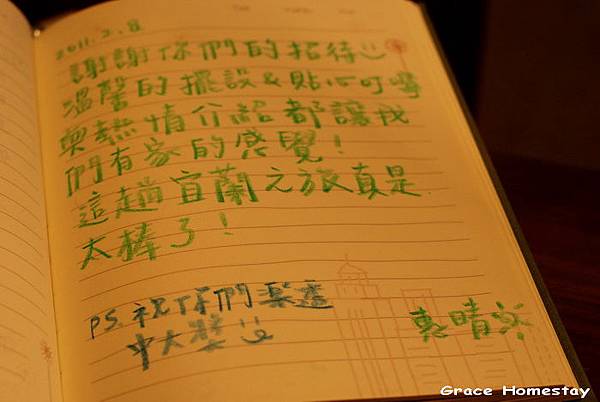 2011.2.8
謝謝你們的招待
溫馨的擺設&貼心叮嚀
與熱情介紹都讓我
們有家的感覺！
這趟宜蘭之旅真是
太棒了！
PS.祝你們樂透
中大獎
惠晴
Grace Homestay